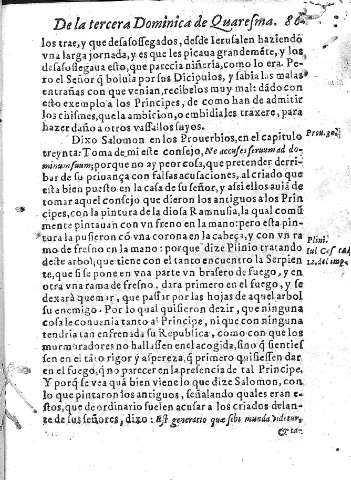 De la tercera Dominica de Quaresma. 86
los trae, y que desasossegados, desde Ierusalen haziendo
vna larga jornada, y es que les picaua grandemẽte, y los
desasossegaua esto, que parecia niñeria, como lo era. Pe-
ro el Señor q̃ boluia por sus Dicipulos, y sabia las malas
entrañas con que venian, recibelos muy mal: dãdo con
esto exemplo a los Principes, de como han de admitir
los chismes, que la ambicion, o embidia les traxere, para
hazer daño a otros vassallos suyos.
Dixo Salomon en los Prouerbios, en el capitulo
Prou. 30.
treynta: Toma de mi este consejo, Ne accuses seruum ad do-
minum suum; porque no ay peor cosa, que pretender derri-
bar de su priuança con falsas acusaciones, al criado que
esta bien puesto en la casa de su señor, y assi ellos auiã de
tomar aquel consejo que dieron los antiguos a los Prin
cipes, con la pintura de la diosa Ramnusia, la qual comũ
mente pintauan con vn freno en la mano: pero esta pin
tura la pusieron cõ vna corona en la cabeça, y con vn ra
Plini.
mo de fresno en la mano: porque dize Plinio tratando
deste arbol, que tiene con el tanto encuentro la Serpien
te, que si se pone en vna parte vn brasero de fuego, y en
otra vna rama de fresno, dara primero en el fuego, y se
dexarà quemar, que passar por las hojas de aquel arbol
su enemigo. Por lo qual quisieron dezir, que ninguna
cosa le conuenia tanto al Principe, ni que con ninguna
tendria tan enfrenada su Republica, como con que los
murmuradores no hallassen en el acogida, sino q̃ senties
sen en el tãto rigor y aspereza, q̃ primero quisiessen dar
en el fuego, q̃ no parecer en la presencia de tal Principe.
Y porq̃ se vea quã bien viene lo que dize Salomon, con
lo que pintaron los antiguos, señalando quales eran e-
stos, que de ordinario suelen acusar a los criados delan-
te de sus señores, dixo: Est generatio que sibi munda videtur,